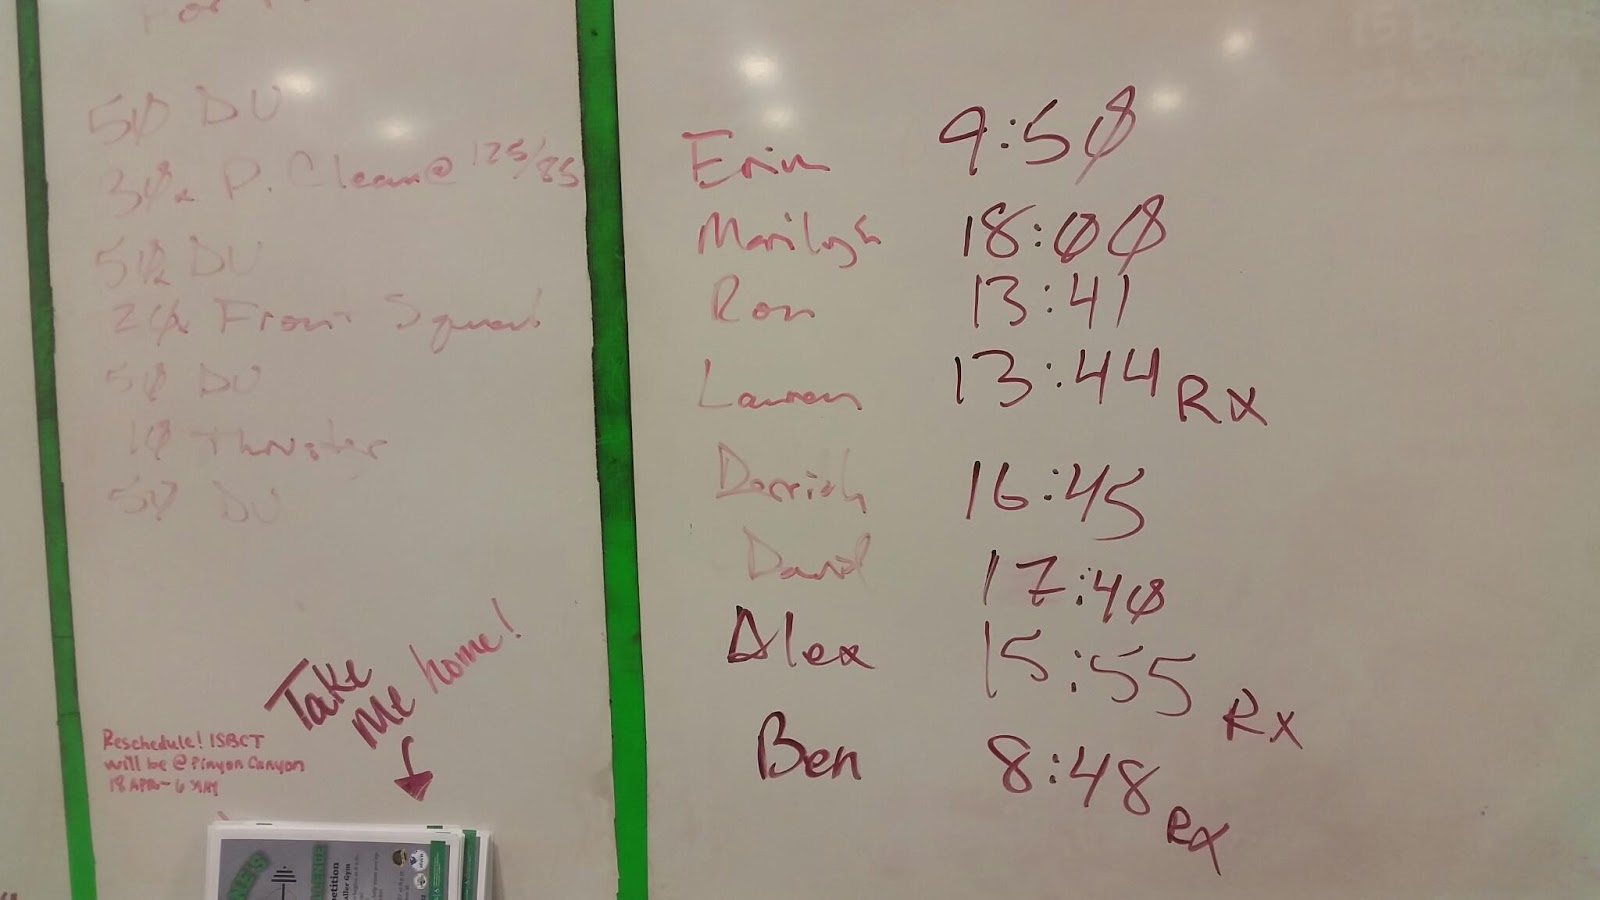 For
50 DU
30x P. Clean @ 125/85
50x DU
20x Front Squat
50 DU
10 Thruster
50 DU
Take
Me home!
Reschedule! 1SBCT
will be @ Pinyon Canyon
18 APR - 6 MAY
Erin 9:50
Marilyn 18:00
Ron 13:41
Lauren 13:44 RX
Derrick 16:45
David 17:40
Alex 15:55 RX
Ben 8:48 RX